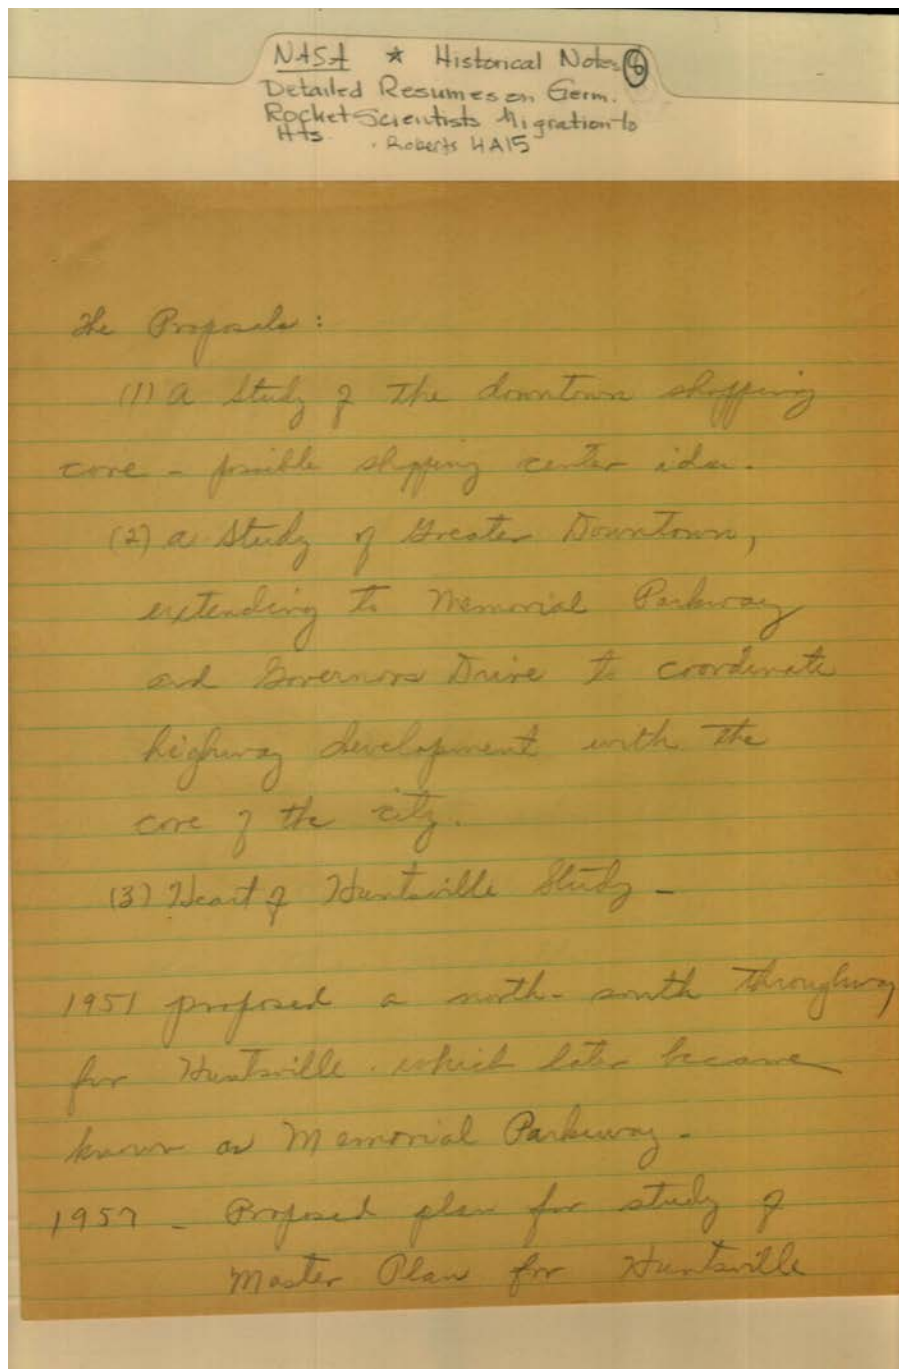 NASA * Historical Notes 8
Detailed Resumes on Germ.
Rocket Scientists Migration to
Hts.
. Roberts HA15
The Proposals :
(1) A Study of The downtown shopping
core - possible shopping center idea.
(2) a Study of Greater Downtown,
extending to Memorial Parkway
and Governors Drive to coordinate
highway development with the
core of the city.
(3) Heart of Huntsville Study -
1951 proposed a north-south Throughway
for Huntsville. which later became
known as Memorial Parkway -
1957 - Proposed plan for study of
Master Plan for Huntsville